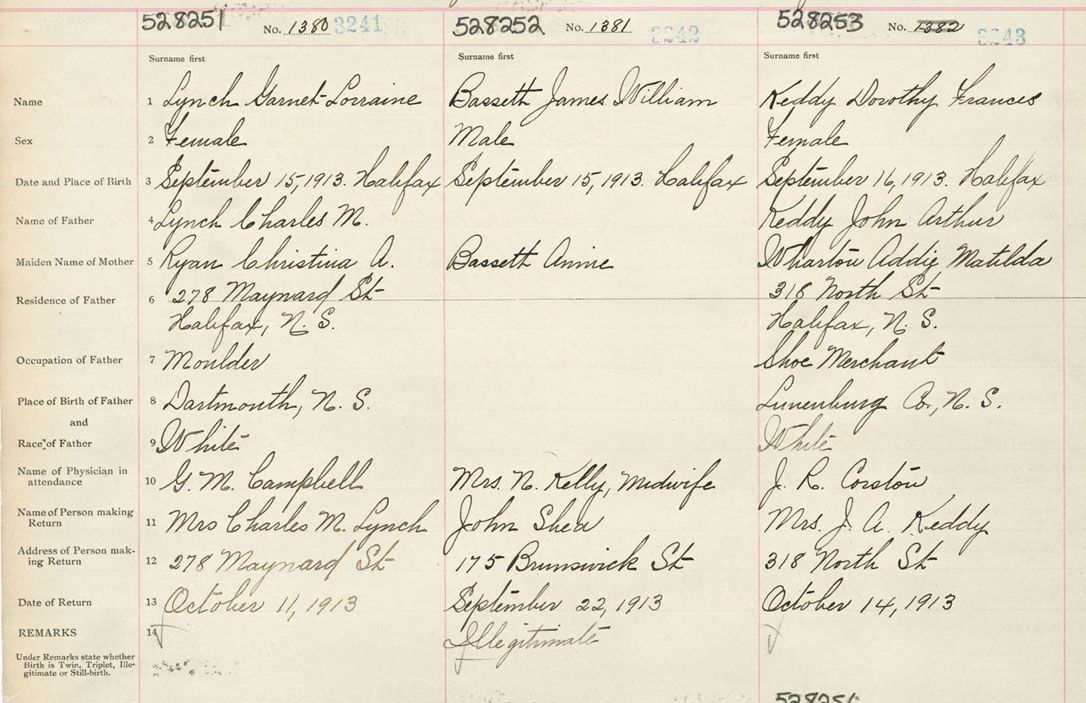 528251 No. 1380 3241 528252 No. 1381 3242 528253 No. 1382 3243
Surname first Surname first Surname first
Name 1 Lynch Garnet Lorraine Bassett James William Keddy Dorothy Frances
Sex 2 Female Male Female
Date and Place of Birth 3 September 15, 1913. Halifax September 15, 1913. Halifax September 16, 1913. Halifax
Name of Father 4 Lynch Charles M. Keddy John Arthur
Maiden Name of Mother 5 Ryan Christina A. Bassett Annie Wharton Addie Matilda
Residence of Father 6 278 Maynard St 318 North St
Halifax, N. S. Halifax, N. S.
Occupation of Father 7 Moulder Shoe Merchant
Place of Birth of Father 8 Dartmouth, N. S. Lunenburg Co., N. S.
and
Race of Father 9 White White
Name of Physician in
attendance 10 G. M. Campbell Mrs. N. Kelly, Midwife J. R. Corston
Name of Person making
Return 11 Mrs Charles M. Lynch John Shea Mrs. J. A. Keddy
Address of Person mak-
ing Return 12 278 Maynard St 175 Brunswick St 318 North St
Date of Return 13 October 11, 1913 September 22, 1913 October 14, 1913
REMARKS 14 Illegitimate
Under Remarks state whether
Birth is Twin, Triplet, Ille-
gitimate or Still-birth.